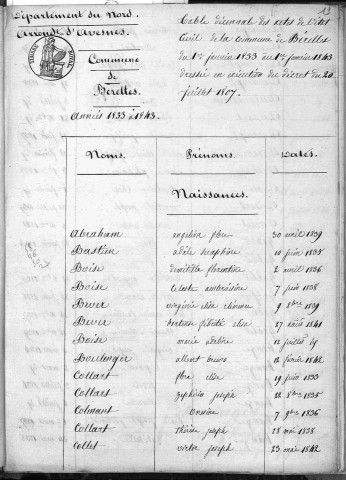 Département du Nord.
Arrond.t d'Avesnes.
Commune
de
Bérelles.
Années 1833 à 1843.
13
Table décennale des actes de l'état
Civil de la Commune de Bérelles
du 1er janvier 1833 au 1er janvier 1843
dressée en exécution du décret du 20
juillet 1807.
Noms. Prénoms. Dates.
Naissances.
Abraham angelina flore 30 avril 1839
Bastien adèle seraphine 10 juin 1835
Boise domitille florentine 2 avril 1836
Boise celeste ambroisine 7 juin 1838
Bever virginie elise 9 8bre 1839
Bever hortense elise 27 août 1841
Boise marie 12 juillet
Boulenger albert bruno 12 février 1842
Collart flore elise 19 juin 1833
Collart zéphirin joseph 22 8bre 1835
Colmant onésime 7 9bre 1836
Collart thérèse joseph 28 mai 1838
Collet victor joseph 23 mai 1842